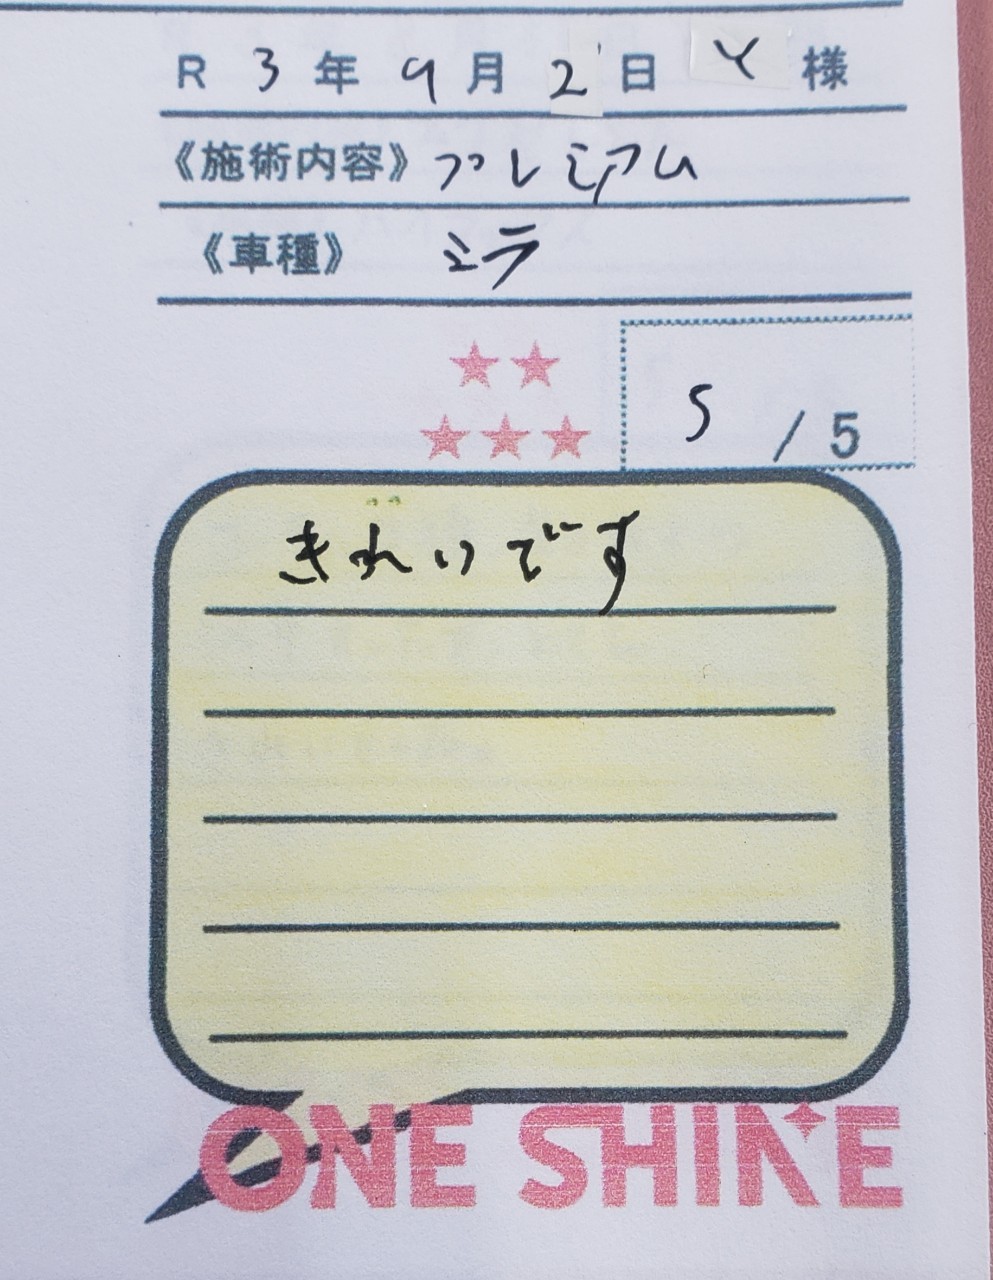 R 3年 9月 2日 Y 様
《施術内容》プレミアム
《車種》 ミラ
5 / 5
きれいです
ONE SHINE